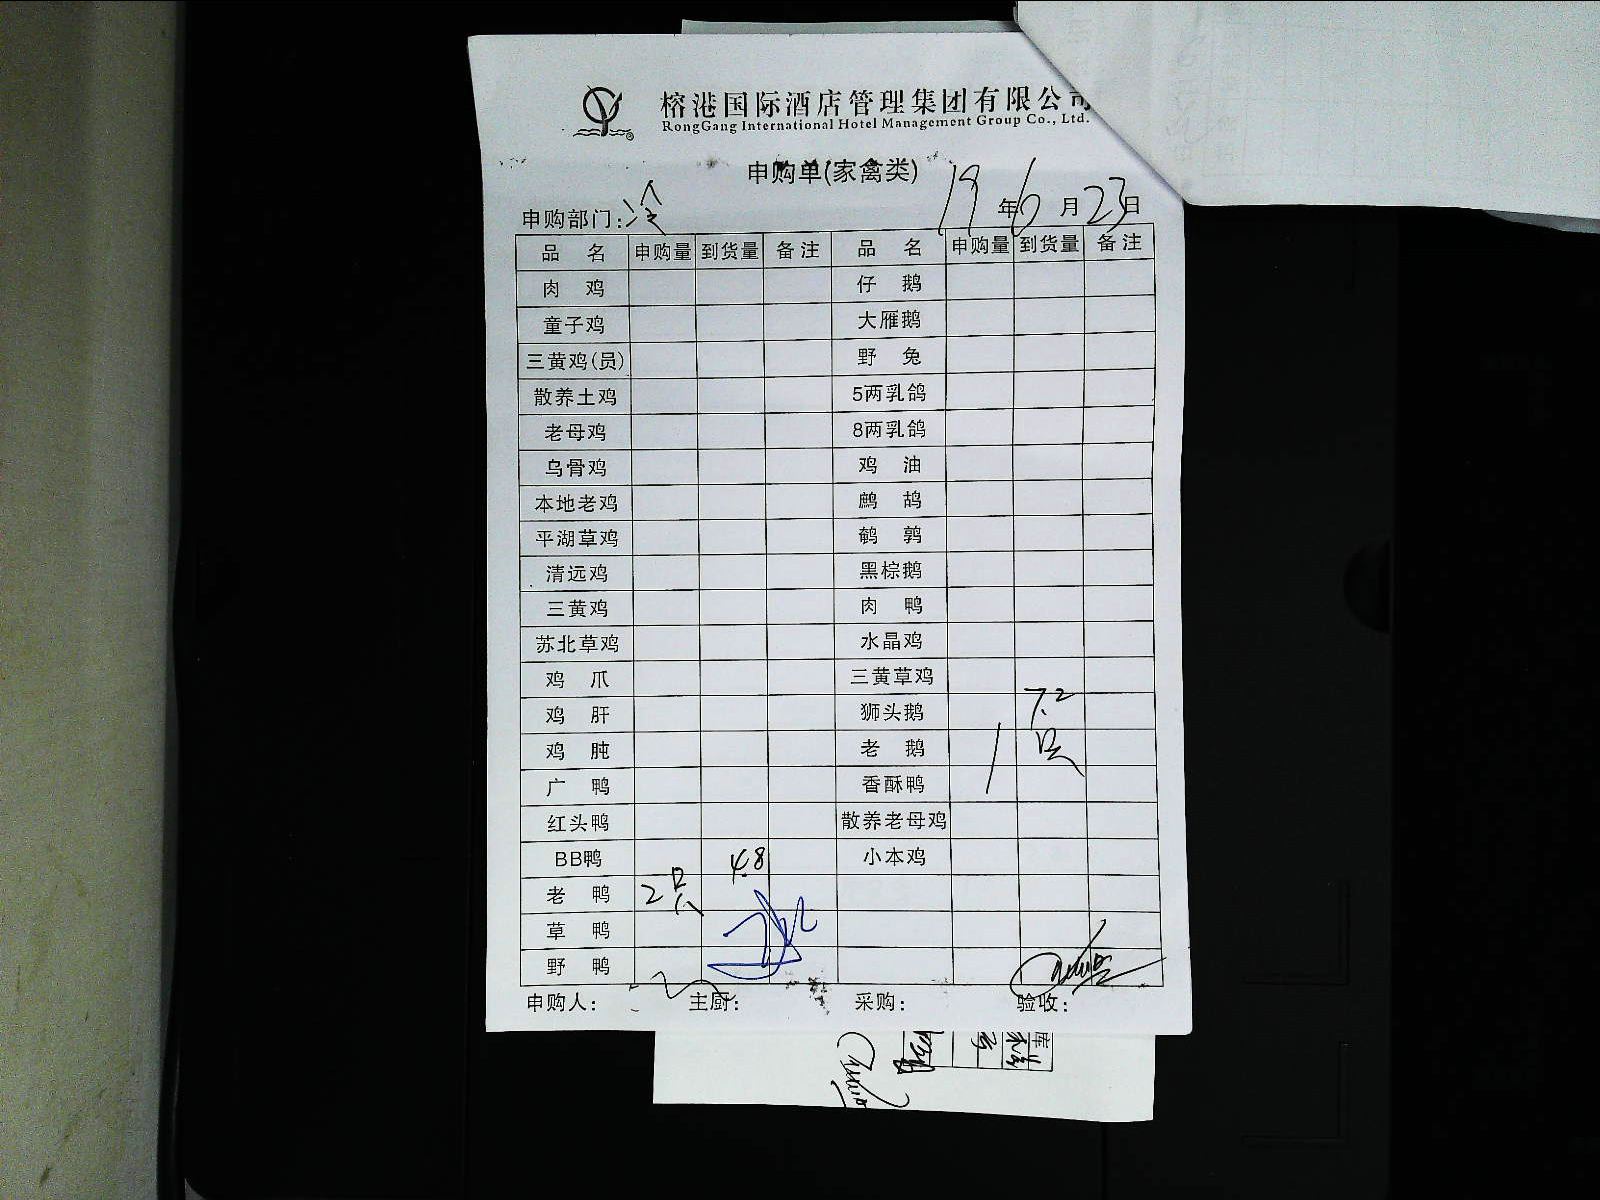 榕港国际酒店管理集团有限公司
RongGang International Hotel Management Group Co., Ltd.
申购单(家禽类)
申购部门:冷 19年6月23日
品名 申购量 到货量 备注 品名 申购量 到货量 备注
肉鸡 仔鹅
童子鸡 大雁鹅
三黄鸡(员) 野兔
散养土鸡 5两乳鸽
老母鸡 8两乳鸽
乌骨鸡 鸡油
本地老鸡 鹧鸪
平湖草鸡 鹌鹑
清远鸡 黑棕鹅
三黄鸡 肉鸭
苏北草鸡 水晶鸡
鸡爪 三黄草鸡
鸡肝 狮头鹅 7.2
鸡肫 老鹅 1只
广鸭 香酥鸭
红头鸭 散养老母鸡
BB鸭 4.8 小本鸡
老鸭 2只
草鸭
野鸭
申购人: 主厨: 采购: 验收: